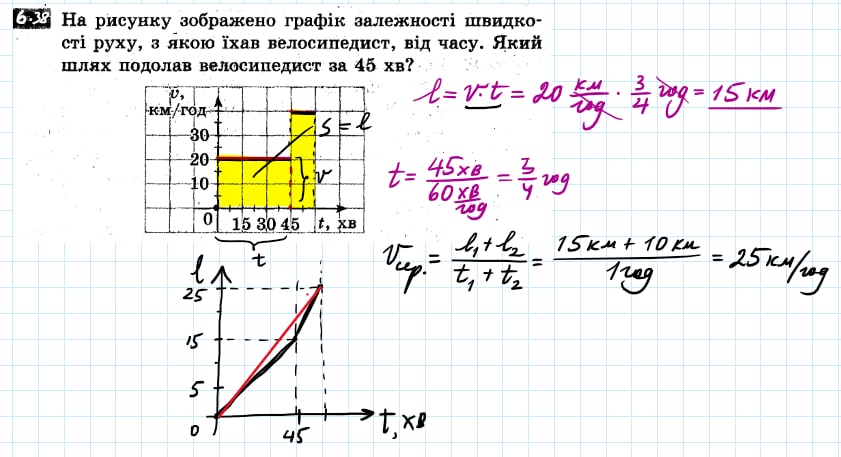 6.38 На рисунку зображено графік залежності швидко-
сті руху, з якою їхав велосипедист, від часу. Який
шлях подолав велосипедист за 45 хв?
l = v·t = 20 км/год · 3/4 год = 15 км
v,
км/год
30
20
10
0
15 30 45 t, хв
S = l
v
t
t = 45хв / 60 хв/год = 3/4 год
Vсер. = l₁ + l₂ / t₁ + t₂ = 15 км + 10 км / 1 год = 25 км/год
l
25
15
5
0
45
t, хв